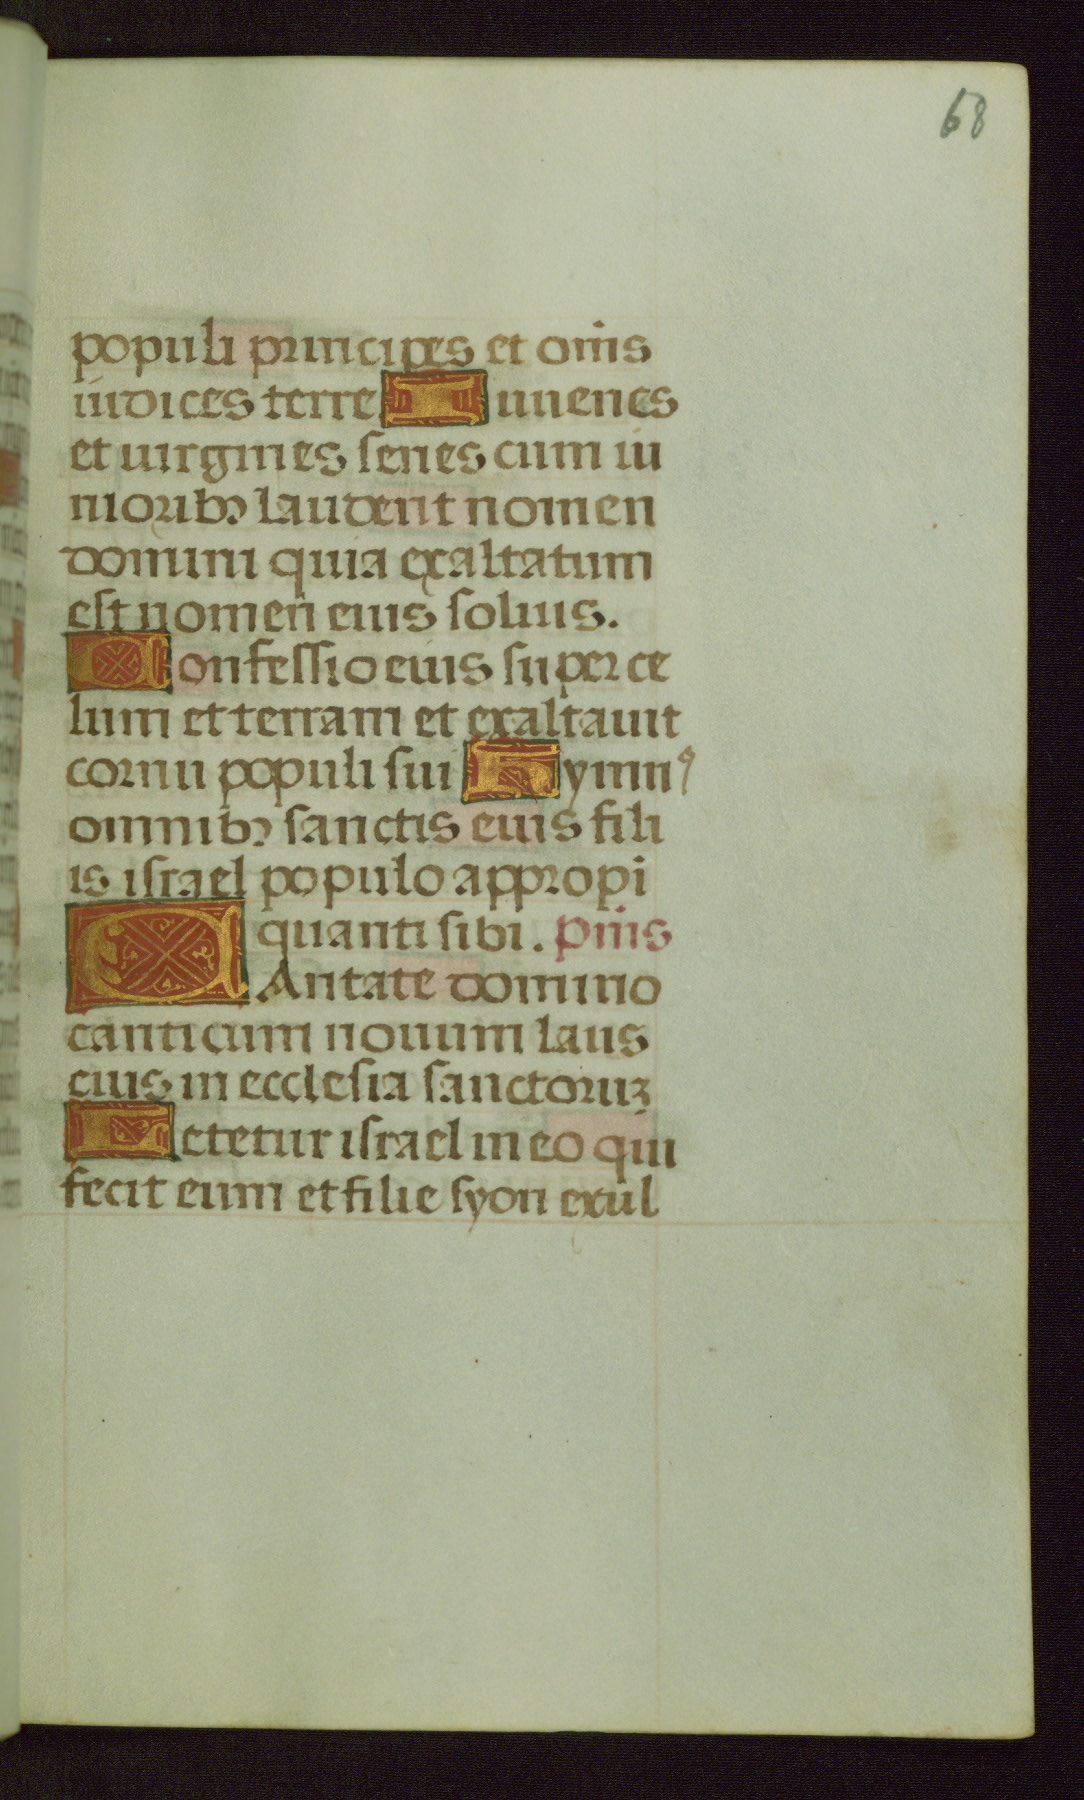 68
populi principes et om̄s
iudices terre Iuuenes
et uirgines senes cum iu
nioribꝫ laudent nomen
domini quia exaltatum
est nomen eius solius.
Confessio eius super ce
lum et terram et exaltauit
cornu populi sui Hymnꝰ
omnibꝫ sanctis eius fili
is israel populo appropi
quanti sibi. p̄m̄s
CAntate domino
canticum nouum laus
eius in ecclesia sanctoruꝫ
Letetur israel in eo qui
fecit eum et filie syon exul